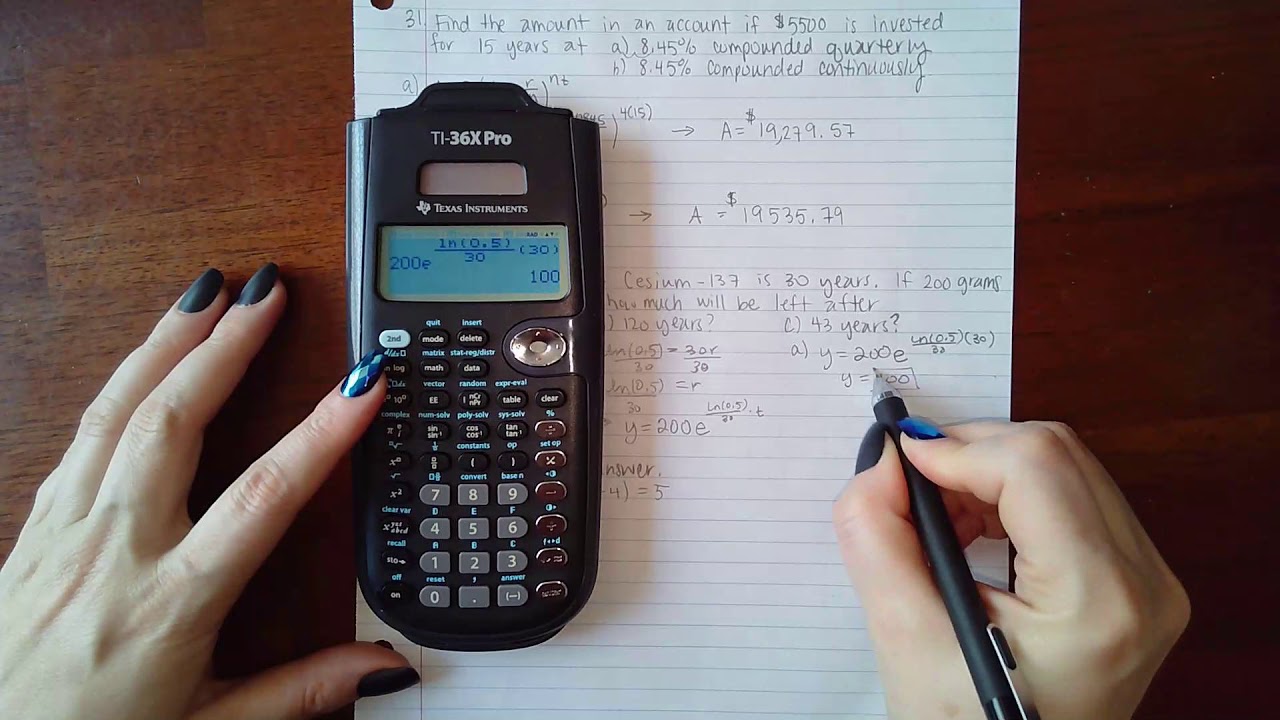 31. Find the amount in an account if $5500 is invested
for 15 years at a) 8.45% compounded quarterly
b) 8.45% compounded continuously
a) r/n)^nt
)^4(15) → A = $19,279.57
→ A = $19535.79
Cesium-137 is 30 years. If 200 grams
how much will be left after
) 120 years? c) 43 years?
ln(0.5)/30 = 30r/30
a) y = 200e^ln(0.5)/30 (30)
ln(0.5)/30 = r
y =
y = 200e^ln(0.5)/30 · t
nswer.
-4) = 5
TI-36X Pro
TEXAS INSTRUMENTS
RAD
200e^ln(0.5)/30 (30)
100
quit insert
2nd mode delete
matrix stat-reg/distr
log math data
vector random expr-eval
EE nCr nPr table clear
complex num-solv poly-solv sys-solv %
π e i sin sin⁻¹ cos cos⁻¹ tan tan⁻¹ ÷
constants op set op
( ) ×
convert base n
x² 7 8 9 −
clear var D E F
xyzt abcd 4 5 6 +
recall A B C f◂▸d
sto→ 1 2 3
off reset , answer
on 0 . (−) enter